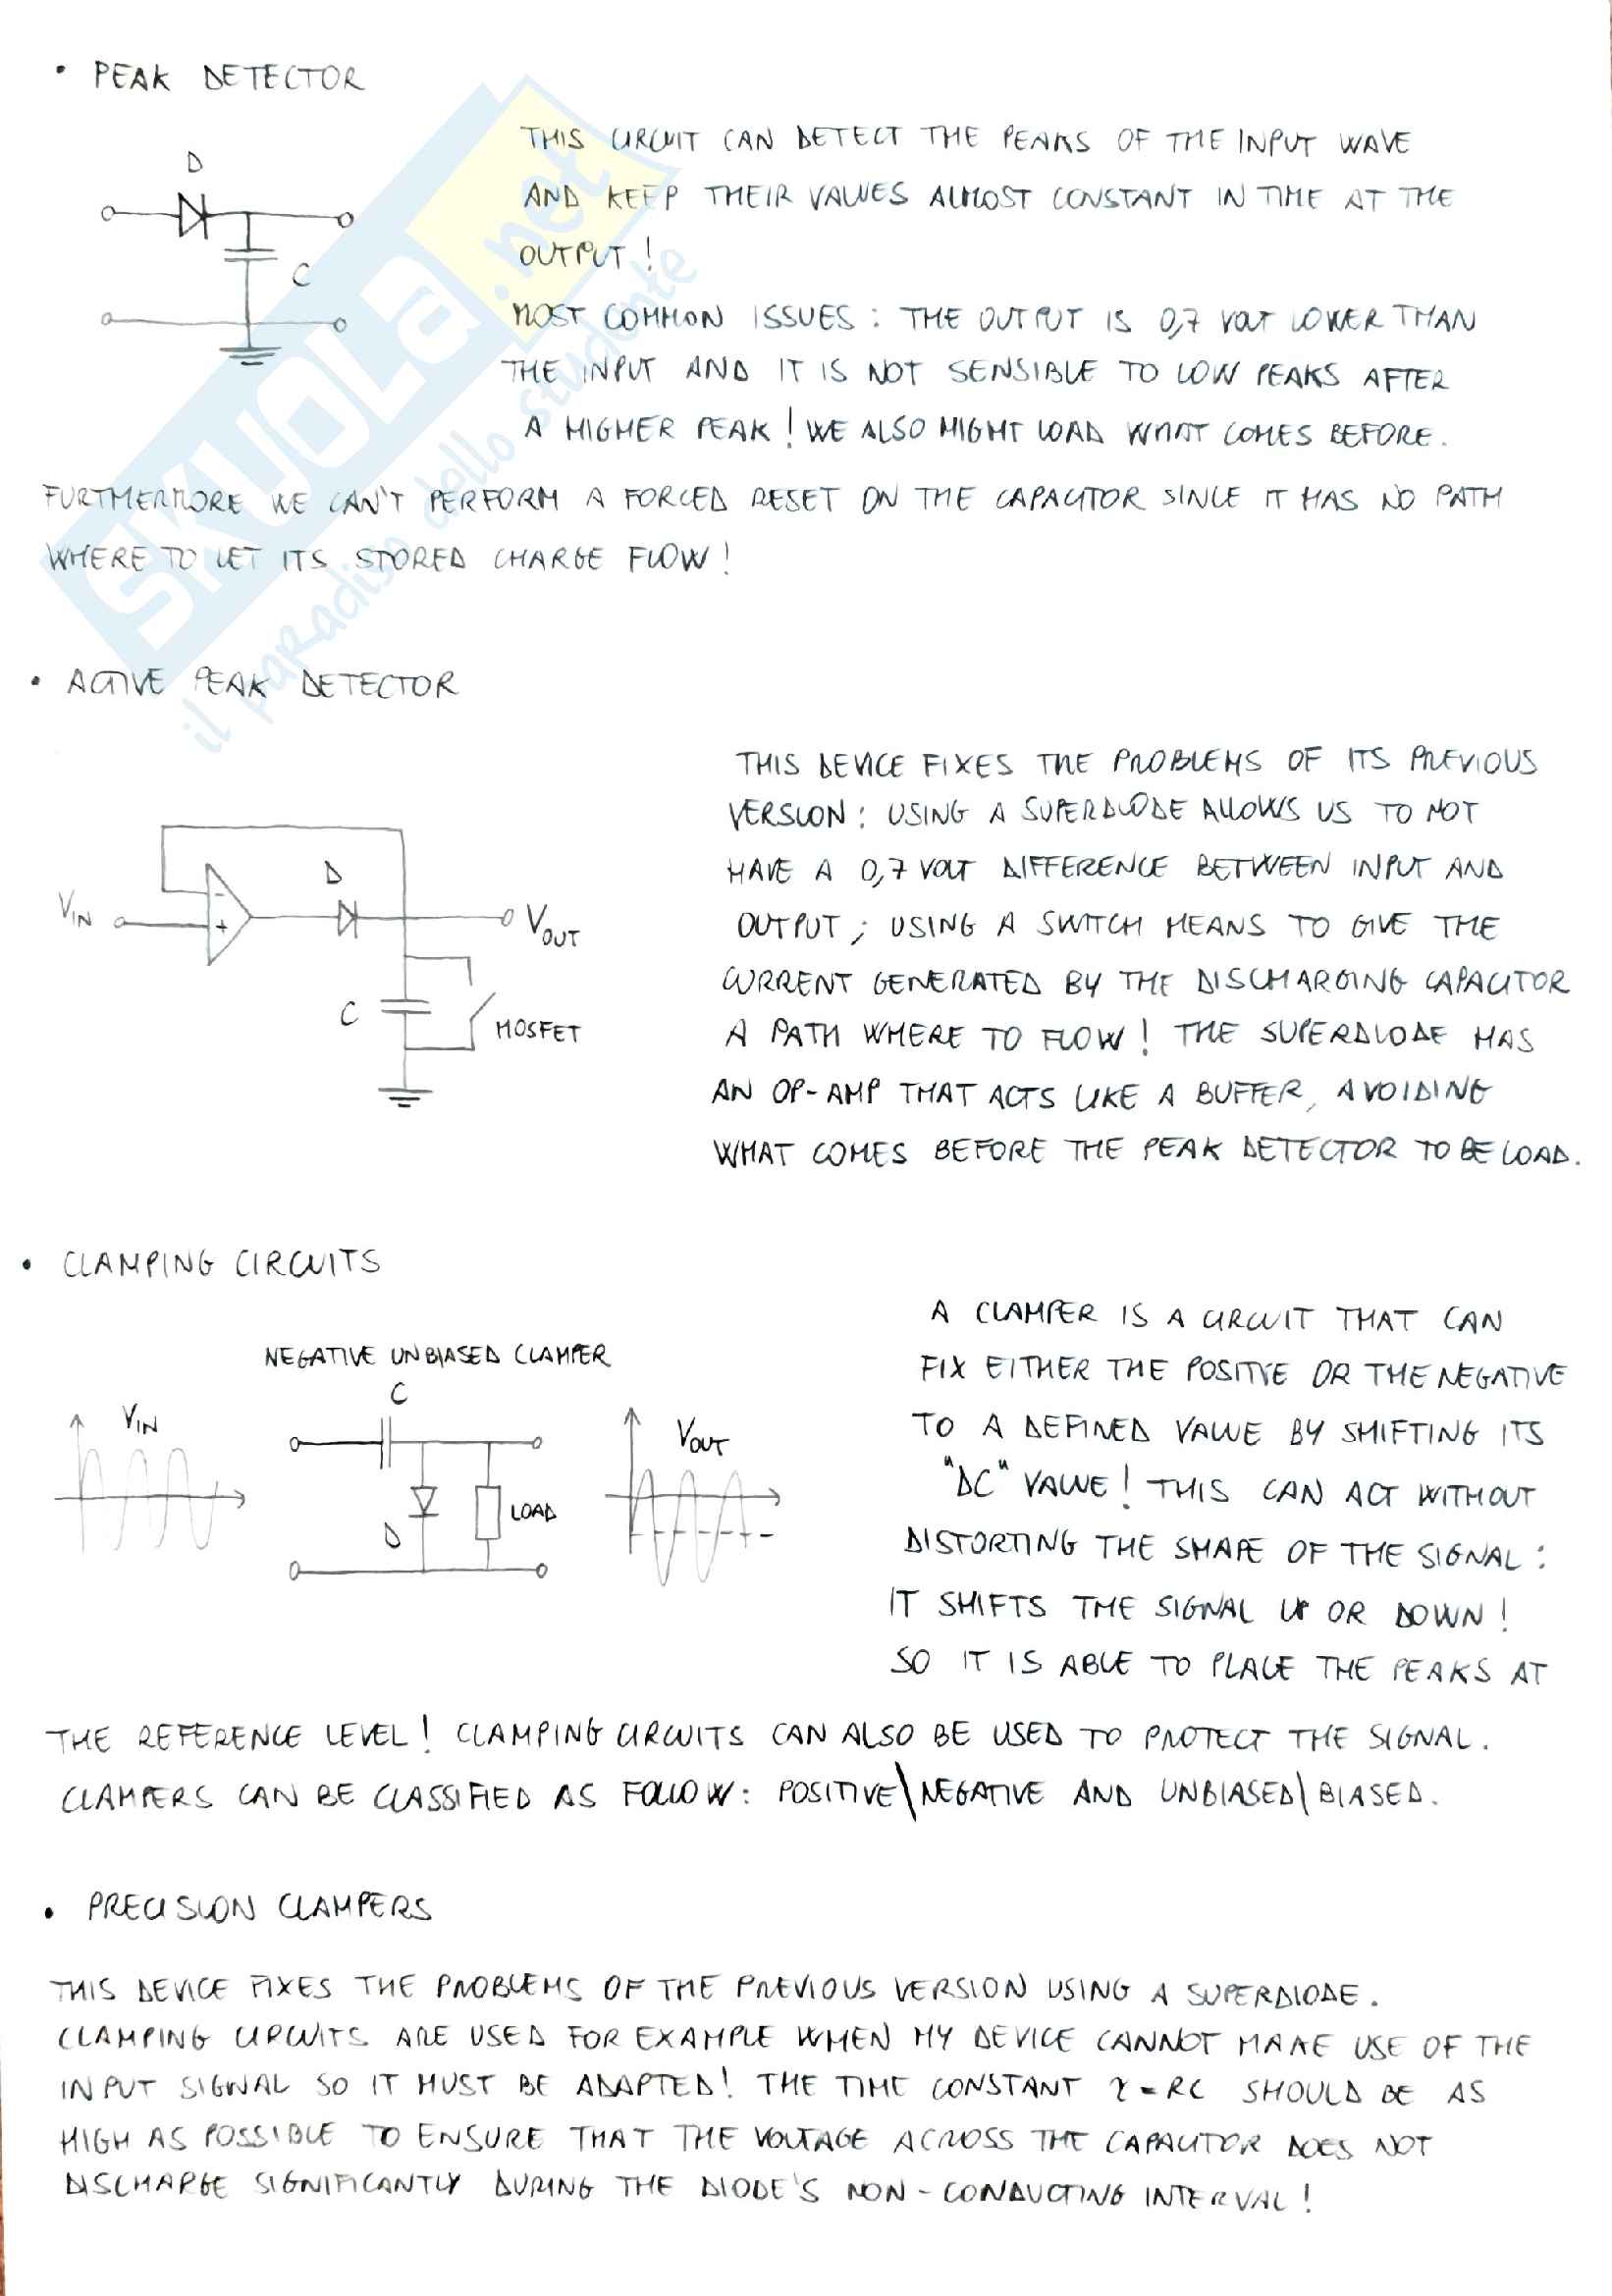 • PEAK DETECTOR
D
C
THIS CIRCUIT CAN DETECT THE PEAKS OF THE INPUT WAVE
AND KEEP THEIR VALUES ALMOST CONSTANT IN TIME AT THE
OUTPUT!
MOST COMMON ISSUES: THE OUTPUT IS 0,7 VOLT LOWER THAN
THE INPUT AND IT IS NOT SENSIBLE TO LOW PEAKS AFTER
A HIGHER PEAK! WE ALSO MIGHT LOAD WHAT COMES BEFORE.
FURTHERMORE WE CAN'T PERFORM A FORCED RESET ON THE CAPACITOR SINCE IT HAS NO PATH
WHERE TO LET ITS STORED CHARGE FLOW!
SKUOLA.net
il paradiso dello studente
• ACTIVE PEAK DETECTOR
VIN
-
+
D
VOUT
C
MOSFET
THIS DEVICE FIXES THE PROBLEMS OF ITS PREVIOUS
VERSION: USING A SUPERDIODE ALLOWS US TO NOT
HAVE A 0,7 VOLT DIFFERENCE BETWEEN INPUT AND
OUTPUT; USING A SWITCH MEANS TO GIVE THE
CURRENT GENERATED BY THE DISCHARGING CAPACITOR
A PATH WHERE TO FLOW! THE SUPERDIODE HAS
AN OP-AMP THAT ACTS LIKE A BUFFER, AVOIDING
WHAT COMES BEFORE THE PEAK DETECTOR TO BE LOAD.
• CLAMPING CIRCUITS
NEGATIVE UNBIASED CLAMPER
VIN
C
D
LOAD
VOUT
A CLAMPER IS A CIRCUIT THAT CAN
FIX EITHER THE POSITIVE OR THE NEGATIVE
TO A DEFINED VALUE BY SHIFTING ITS
"DC" VALUE! THIS CAN ACT WITHOUT
DISTORTING THE SHAPE OF THE SIGNAL:
IT SHIFTS THE SIGNAL UP OR DOWN!
SO IT IS ABLE TO PLACE THE PEAKS AT
THE REFERENCE LEVEL! CLAMPING CIRCUITS CAN ALSO BE USED TO PROTECT THE SIGNAL.
CLAMPERS CAN BE CLASSIFIED AS FOLLOW: POSITIVE\NEGATIVE AND UNBIASED\BIASED.
• PRECISION CLAMPERS
THIS DEVICE FIXES THE PROBLEMS OF THE PREVIOUS VERSION USING A SUPERDIODE.
CLAMPING CIRCUITS ARE USED FOR EXAMPLE WHEN MY DEVICE CANNOT MAKE USE OF THE
INPUT SIGNAL SO IT MUST BE ADAPTED! THE TIME CONSTANT τ=RC SHOULD BE AS
HIGH AS POSSIBLE TO ENSURE THAT THE VOLTAGE ACROSS THE CAPACITOR DOES NOT
DISCHARGE SIGNIFICANTLY DURING THE DIODE'S NON-CONDUCTING INTERVAL!